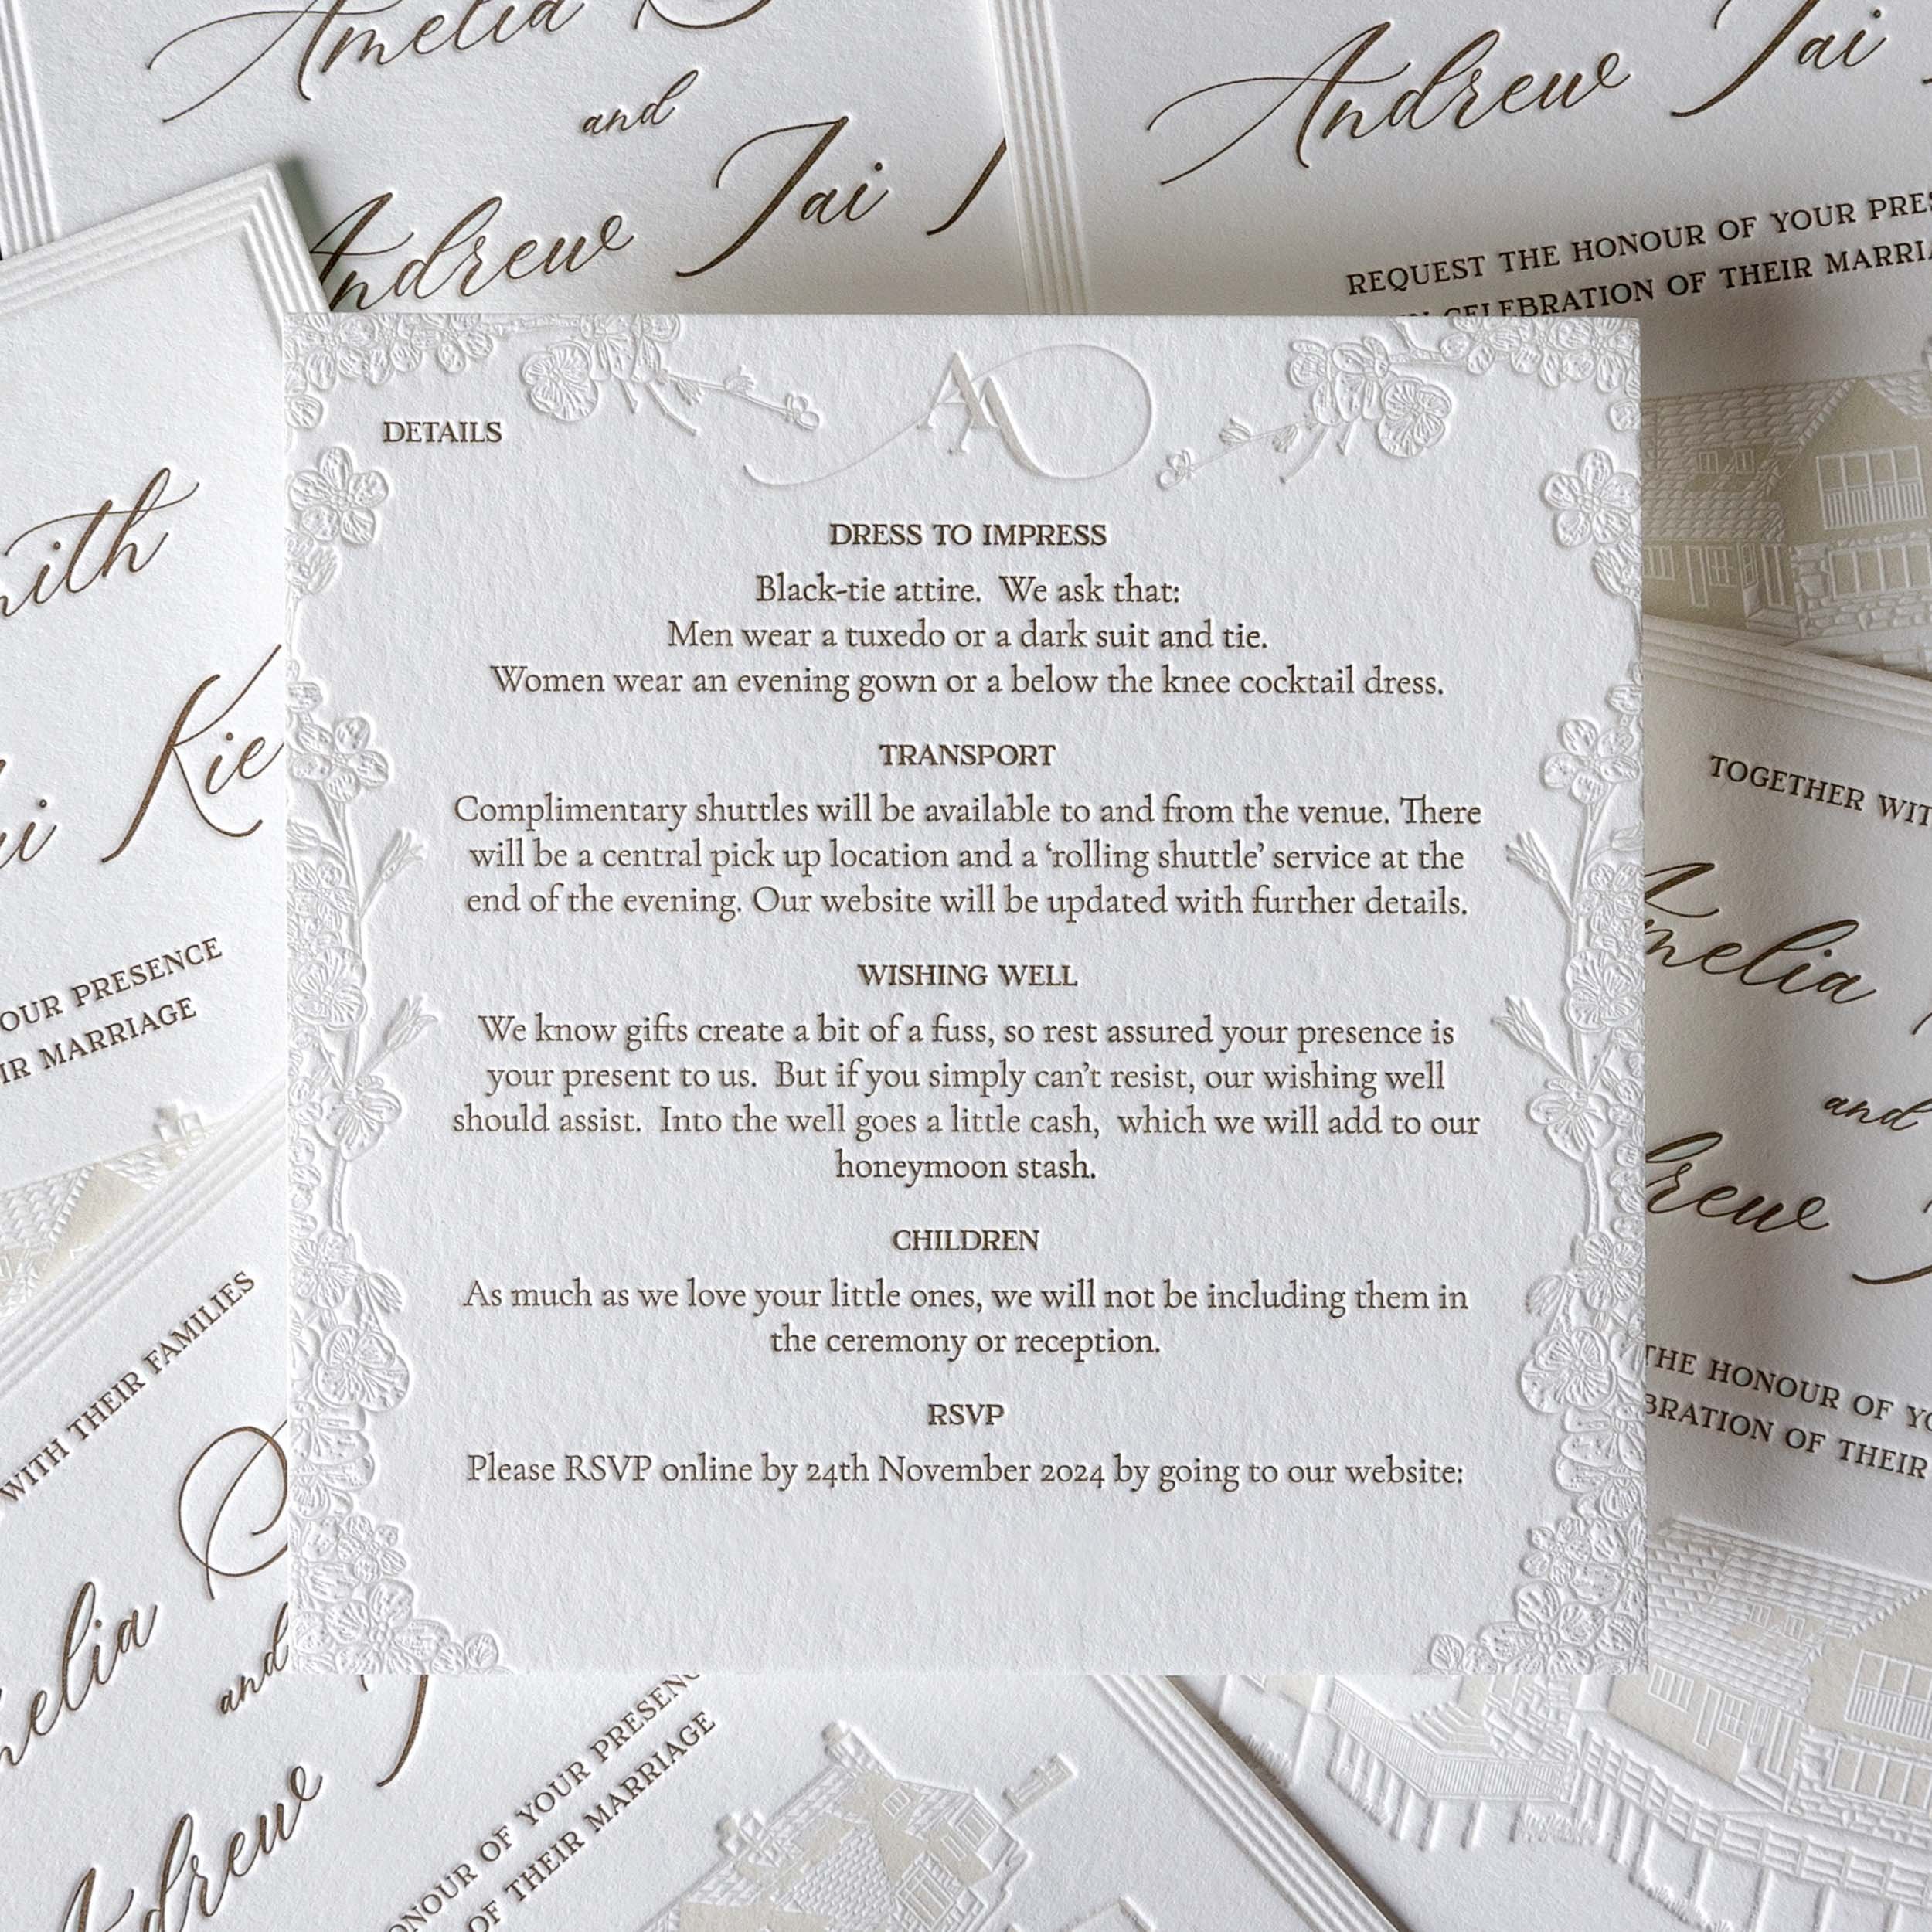 Amelia
and
Andrew Jai
Andrew Jai
REQUEST THE HONOUR OF YOUR
CELEBRATION OF THEIR
DETAILS
AA
DRESS TO IMPRESS
Black-tie attire.  We ask that:
Men wear a tuxedo or a dark suit and tie.
Women wear an evening gown or a below the knee cocktail dress.
TRANSPORT
Complimentary shuttles will be available to and from the venue. There
will be a central pick up location and a ‘rolling shuttle’ service at the
end of the evening. Our website will be updated with further details.
WISHING WELL
We know gifts create a bit of a fuss, so rest assured your presence is
your present to us.  But if you simply can’t resist, our wishing well
should assist.  Into the well goes a little cash,  which we will add to our
honeymoon stash.
CHILDREN
As much as we love your little ones, we will not be including them in
the ceremony or reception.
RSVP
Please RSVP online by 24th November 2024 by going to our website:
PRESENCE
MARRIAGE
WITH THEIR FAMILIES
and
Andrew
OF YOUR
OF THEIR MARRIAGE
TOGETHER
Amelia
and
THE HONOUR OF
OF THEIR